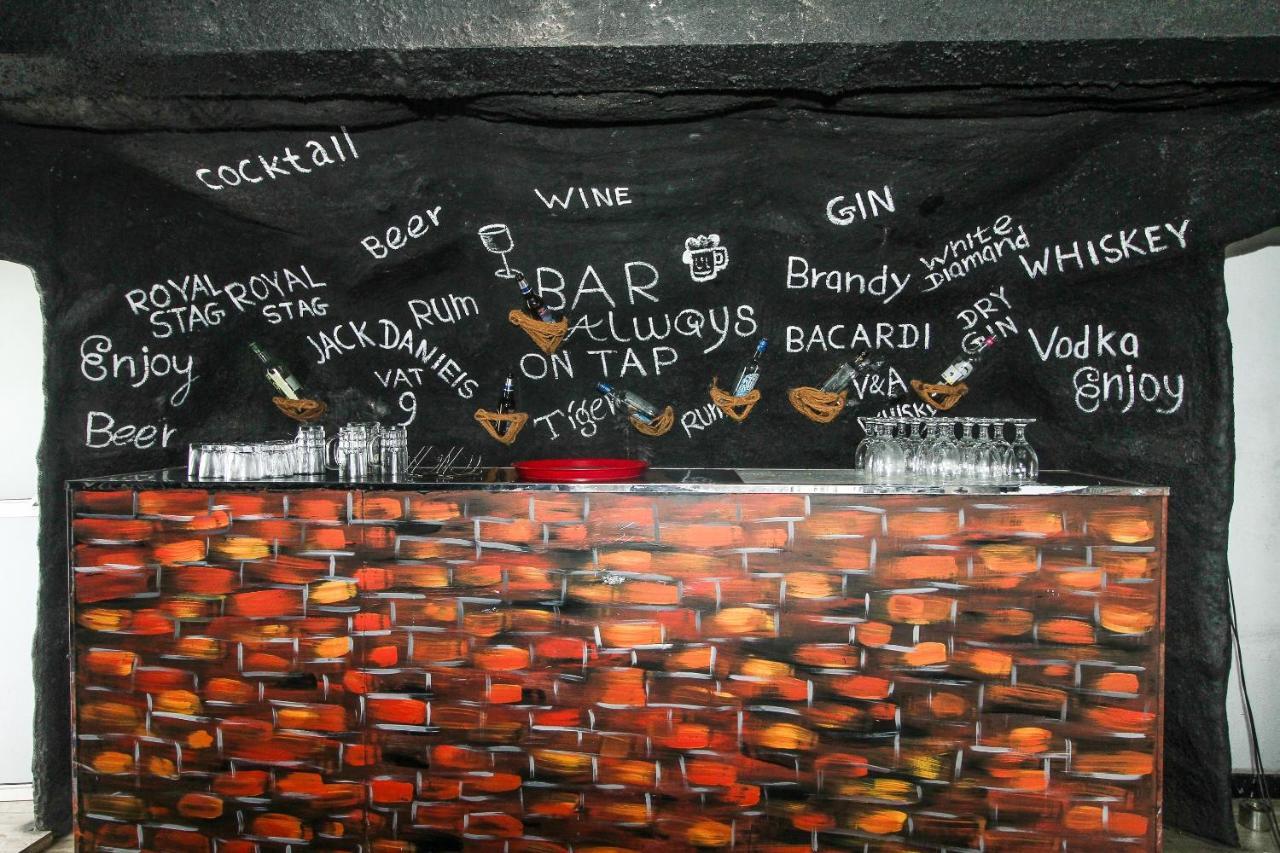 cocktall
WINE
GIN
Beer
White
Diamand
WHISKEY
BAR
Brandy
ROYAL
STAG
ROYAL
STAG
Rum
DRY
GIN
Always
JACK DANIEIS
BACARDI
Vodka
Enjoy
ON TAP
VAT
9
V&A
WHISKY
Enjoy
Beer
Tiger
Rum